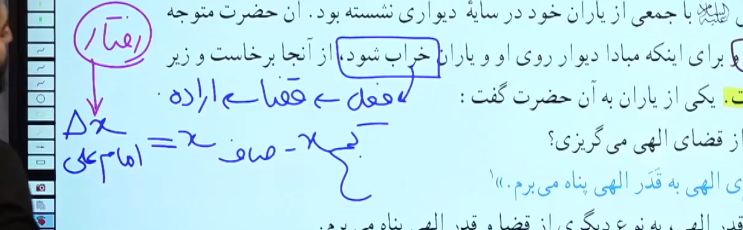 با جمعی از یاران خود در سایهٔ دیواری نشسته بود. آن حضرت متوجه
و برای اینکه مبادا دیوار روی او و یاران خراب شود، از آنجا برخاست و زیر
ت. یکی از یاران به آن حضرت گفت:
از قضای الهی می‌گریزی؟
ی الهی به قَدَر الهی پناه می‌برم.»۱
قدر الهی، به نوع دیگری از قضا و قدر الهی پناه می‌برم.
رفتار
فعل ← قضا ← اراده
Δx = x صاف - x کج
امام علی